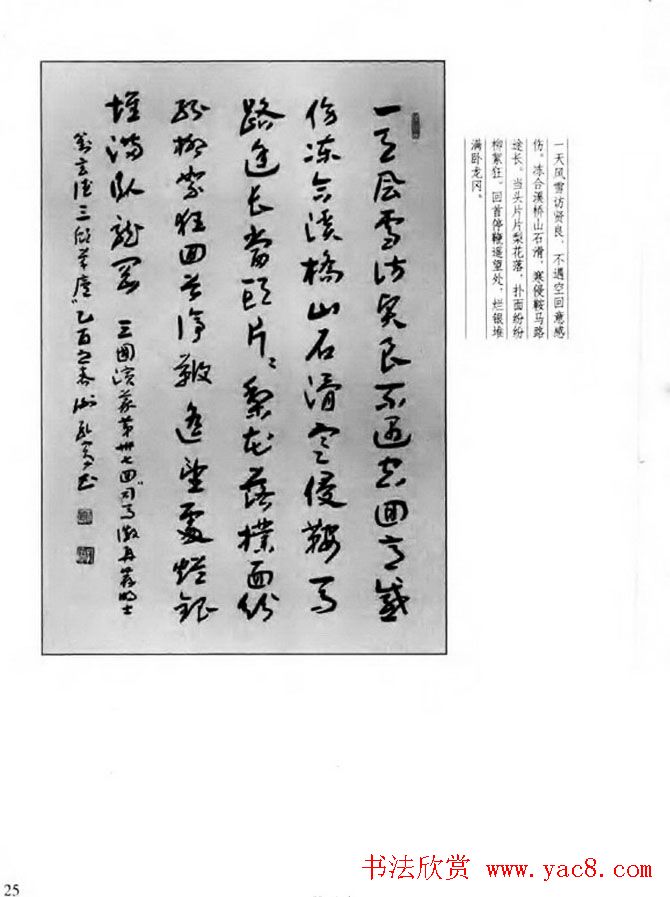 一天风雪访贤良，不遇空回意感
伤。冻合溪桥山石滑，寒侵鞍马路
途长。当头片片梨花落，扑面纷纷
柳絮狂。回首停鞭遥望处，烂银堆
满卧龙冈。
一天風雪訪賢良不遇空回意感
傷凍合溪橋山石滑寒侵鞍馬
路途長當頭片々梨花落撲面紛
紛柳絮狂回首停鞭遙望處爛銀
堆滿臥龍岡 三國演義第卅七回"司馬徽再薦名士
劉玄德三顧草廬"乙酉之春
25
书法欣赏 www.yac8.com